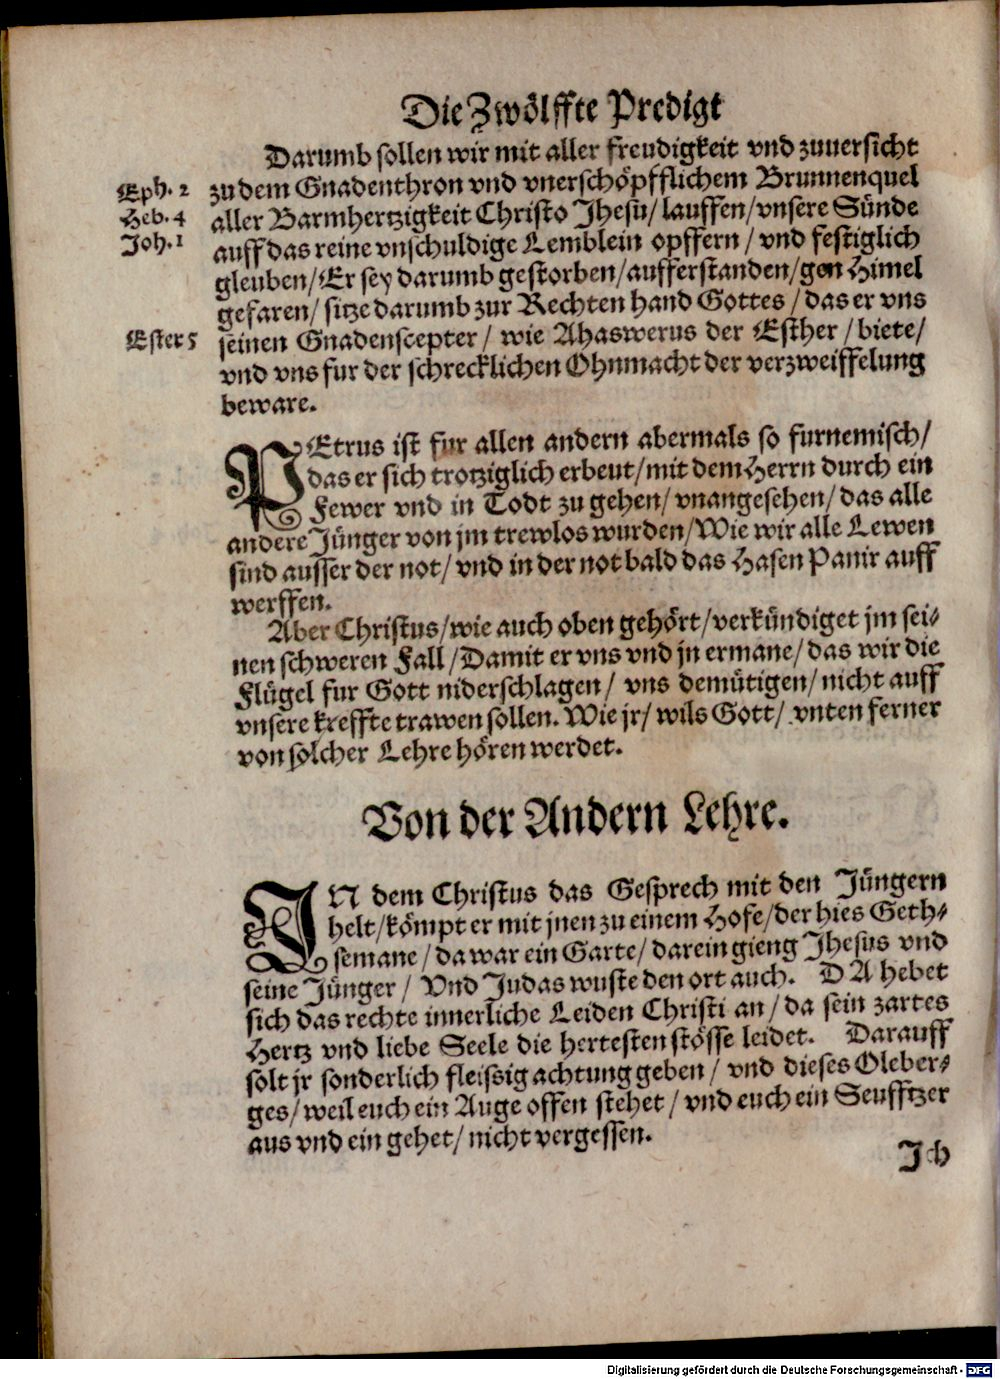 Die Zwölffte Predigt
Darumb sollen wir mit aller freudigkeit vnd zuuersicht
Eph. 2 zu dem Gnadenthron vnd vnerschöpfflichem Brunnenquel
Heb. 4 aller Barmhertzigkeit Christo Jhesu/ lauffen/ vnsere Sünde
Joh. 1 auff das reine vnschuldige Lemblein opffern/ vnd festiglich
gleuben/ Er sey darumb gestorben/ aufferstanden/ gen Himel
gefaren/ sitze darumb zur Rechten hand Gottes/ das er vns
Ester 5 seinen Gnadenscepter/ wie Ahaswerus der Esther/ biete/
vnd vns fur der schrecklichen Ohnmacht der verzweiffelung
beware.
PEtrus ist fur allen andern abermals so furnemisch/
das er sich trotziglich erbeut/ mit dem Herrn durch ein
Fewer vnd in Todt zu gehen/ vnangesehen/ das alle
andere Jünger von jm trewlos wurden/ Wie wir alle Lewen
sind ausser der not/ vnd in der not bald das Hasen Panir auff
werffen.
Aber Christus/ wie auch oben gehört/ verkündiget jm sei-
nen schweren Fall/ Damit er vns vnd jn ermane/ das wir die
Flügel fur Gott niderschlagen/ vns demütigen/ nicht auff
vnsere kreffte trawen sollen. Wie jr/ wils Gott/ vnten ferner
von solcher Lehre hören werdet.
Von der Andern Lehre.
IN dem Christus das Gesprech mit den Jüngern
helt/ kömpt er mit jnen zu einem Hofe/ der hies Geth-
semane/ da war ein Garte/ darein gieng Jhesus vnd
seine Jünger/ Vnd Judas wuste den ort auch. DA hebet
sich das rechte innerliche Leiden Christi an/ da sein zartes
Hertz vnd liebe Seele die hertesten stösse leidet. Darauff
solt jr sonderlich fleissig achtung geben/ vnd dieses Oleber-
ges/ weil euch ein Auge offen stehet/ vnd euch ein Seufftzer
aus vnd ein gehet/ nicht vergessen.
Ich
Digitalisierung gefördert durch die Deutsche Forschungsgemeinschaft - DFG